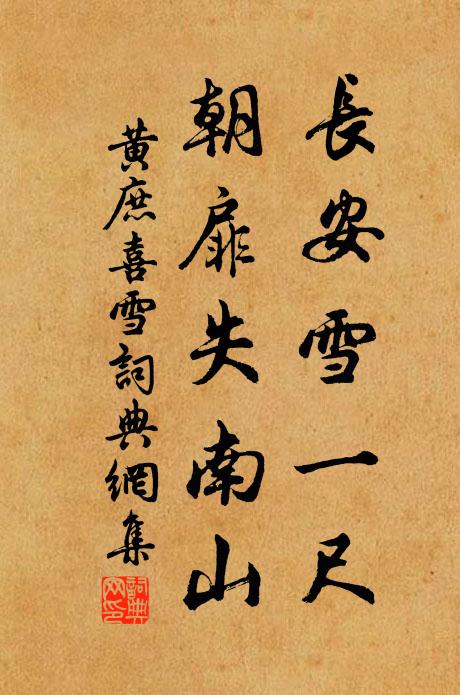 長安雪一尺
朝扉失南山
黃庶喜雪詞典網集
詞典
网印